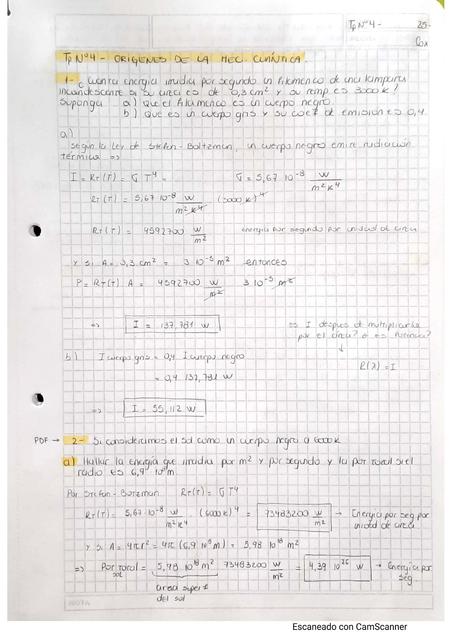 Tp N°4 - 25-
TpN°4 - ORIGENES DE LA MEC. CUÁNTICA.
1- ¿Cuanta energia irradia por segundo un filamento de una lampara
incandescente si su area es de 0,3 cm² y su temp es 3000 K?
Suponga a) Que el filamento es un cuerpo negro.
b) Que es un cuerpo gris y su coef de emisión es 0,4.
a)
Según la Ley de Stefan-Boltzman, un cuerpo negro emite radiación
térmica =>
I = RT(T) = σ T⁴ = σ = 5,67 10⁻⁸ W/m² K⁴
RT(T) = 5,67 10⁻⁸ W/m² K⁴ (3000 K)⁴
RT(T) = 4592700 W/m² energía por segundo por unidad de area
Y si A = 0,3 cm² = 3 10⁻⁵ m² entonces
P = RT(T) A = 4592700 W/m² 3 10⁻⁵ m²
=> I = 137,781 W => I despues de multiplicarla
por el area? o es Potencia?
R(λ) = I
b) I cuerpo gris = 0,4 I cuerpo negro
= 0,4 137,781 W
=> I = 55,112 W
PDF → 2- Si consideramos el sol como un cuerpo negro a 6000 K
a) Hallar la energía que irradia por m² y por segundo y la pot total si el
radio es 6,9 10⁸ m.
Por Stefan-Boltzman RT(T) = σ T⁴
RT(T) = 5,67 10⁻⁸ W/m² K⁴ (6000 K)⁴ = 73483200 W/m² → Energía por seg por
unidad de area
Y si A = 4πr² = 4π (6,9 10⁸ m)² = 5,98 10¹⁸ m²
=> Pot total sol = 5,98 10¹⁸ m² 73483200 W/m² = 4,39 10²⁶ W → Energía por
seg
area superf
del sol
Escaneado con CamScanner